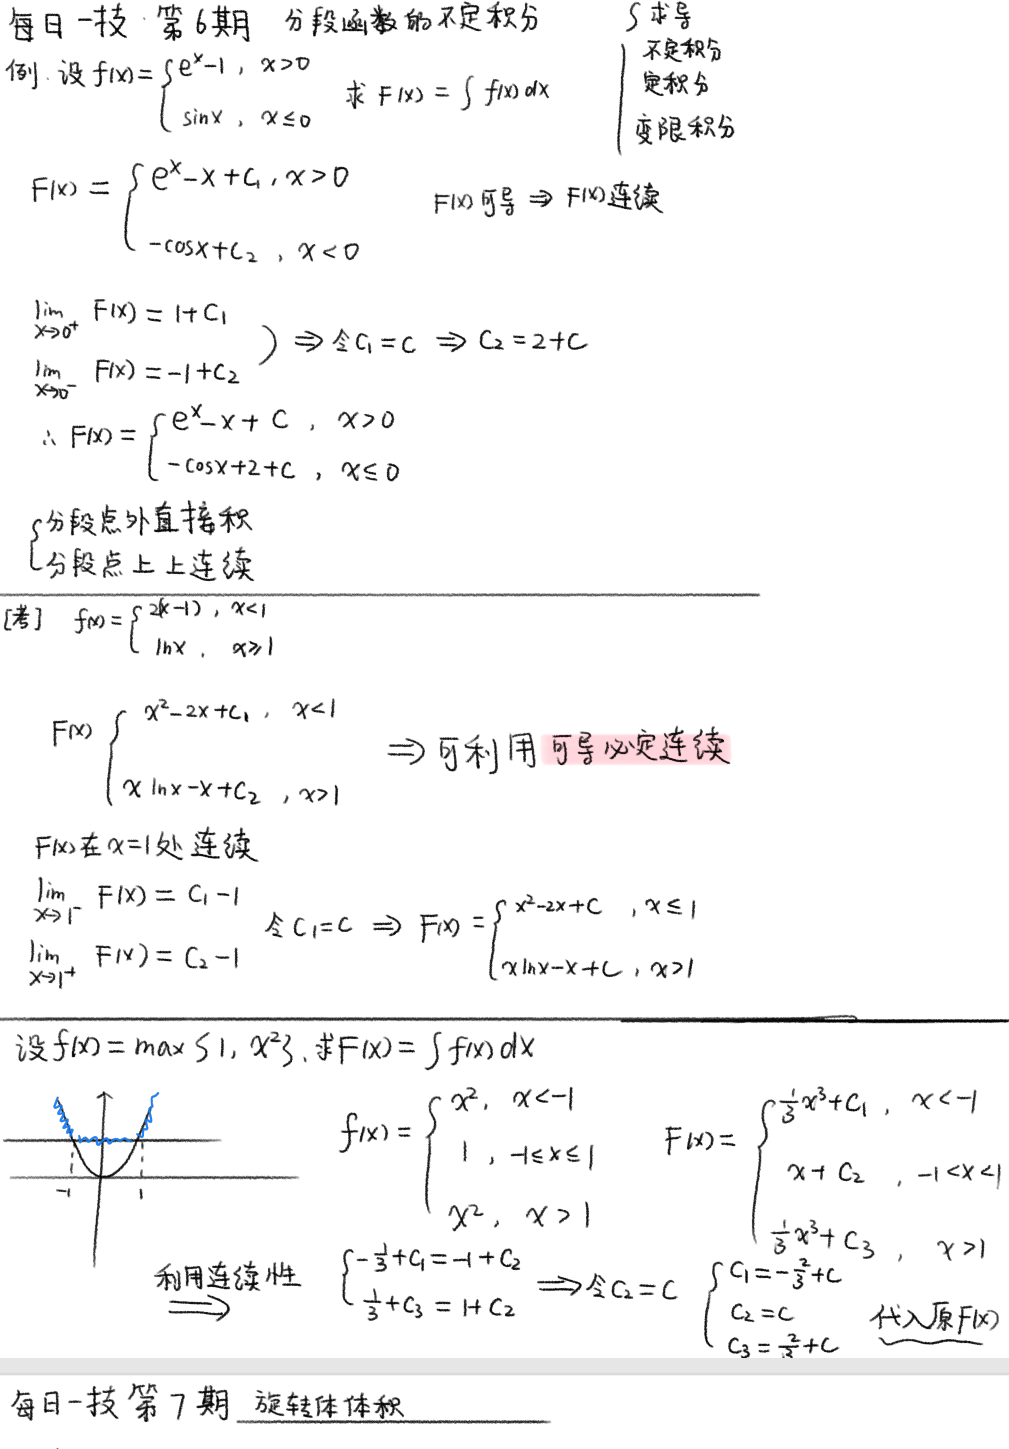 每日一技·第6期 分段函数的不定积分
{求导
不定积分
定积分
变限积分
例.设f(x)={e^x-1, x>0
sinx, x≤0
求F(x)=∫f(x)dx
F(x)={e^x-x+C₁, x>0
-cosx+C₂, x<0
F(x)可导⇒F(x)连续
lim x→0⁺ F(x)=1+C₁
lim x→0⁻ F(x)=-1+C₂
)⇒令C₁=C⇒C₂=2+C
∴F(x)={e^x-x+C, x>0
-cosx+2+C, x≤0
{分段点外直接积
分段点上上连续
[考] f(x)={2(x-1), x<1
lnx, x≥1
F(x){x²-2x+C₁, x<1
xlnx-x+C₂, x>1
⇒可利用可导必定连续
F(x)在x=1处连续
lim x→1⁻ F(x)=C₁-1
lim x→1⁺ F(x)=C₂-1
令C₁=C⇒F(x)={x²-2x+C, x≤1
xlnx-x+C, x>1
设f(x)=max{1, x²}.求F(x)=∫f(x)dx
-1 1
f(x)={x², x<-1
1, -1≤x≤1
x², x>1
F(x)={⅓x³+C₁, x<-1
x+C₂, -1<x<1
⅓x³+C₃, x>1
利用连续性⇒
{-⅓+C₁=-1+C₂
⅓+C₃=1+C₂
⇒令C₂=C
{C₁=-⅔+C
C₂=C
C₃=⅔+C
代入原F(x)
每日一技第7期 旋转体体积